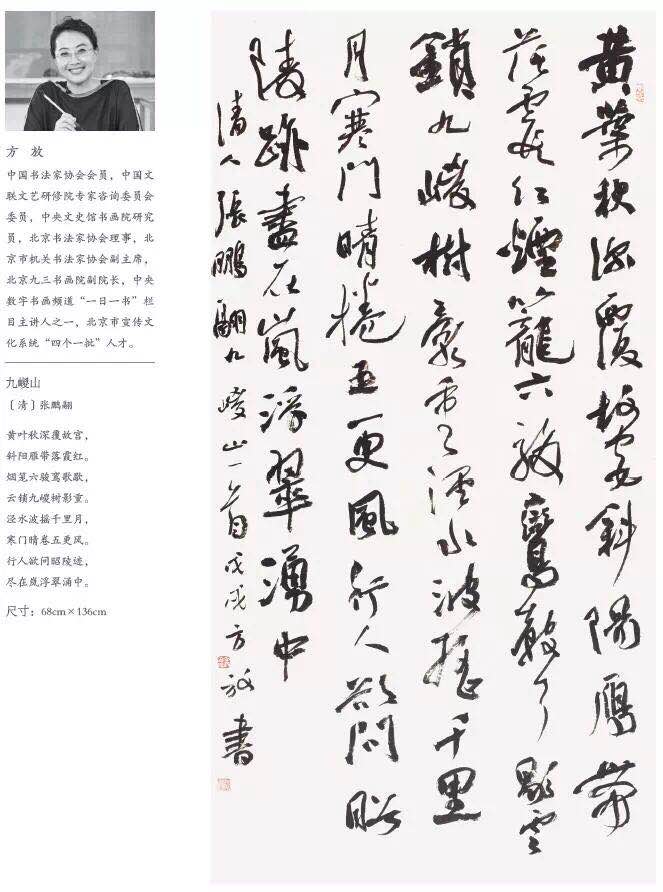 方 放
中国书法家协会会员，中国文
联文艺研修院专家咨询委员会
委员，中央文史馆书画院研究
员，北京书法家协会理事，北
京市机关书法家协会副主席，
北京九三书画院副院长，中央
数字书画频道“一日一书”栏
目主讲人之一，北京市宣传文
化系统“四个一批”人才。
九嵕山
〔清〕张鹏翮
黄叶秋深覆故宫，
斜阳雁带落霞红。
烟笼六骏鸾歌歇，
云锁九嵕树影重。
泾水波摇千里月，
寒门晴卷五更风。
行人欲问昭陵迹，
尽在岚浮翠涌中。
尺寸：68cm×136cm
黃葉秋深覆故宮斜陽鴈帶
落霞红煙籠六駿鸞歌歇雲
鎖九嵕樹影重涇水波搖千里
月寒門晴捲五更風行人欲問昭
陵跡盡在嵐浮翠湧中
清人張鵬翮九嵕山一首戊戌方放書